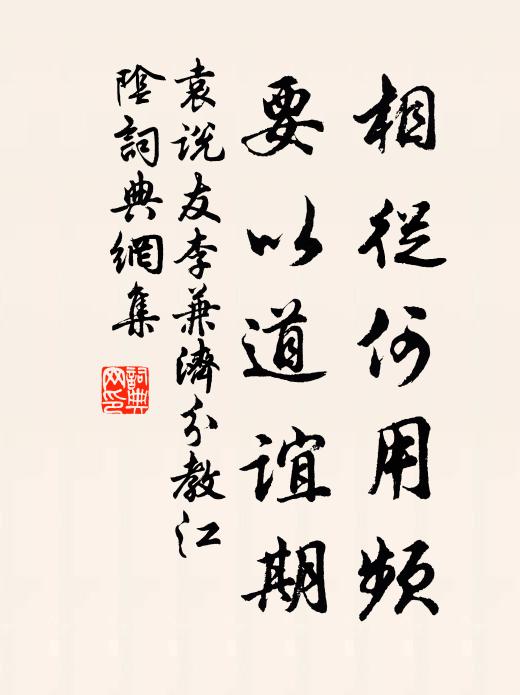 相從何用頻
要以道誼期
袁說友李兼濟分教江
陰詞典網集
詞典
网印